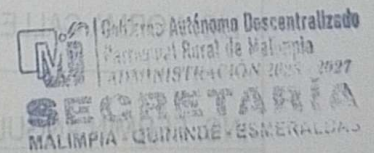 Gobierno Autónomo Descentralizado
Parroquial Rural de Malimpia
ADMINISTRACIÓN 2023 - 2027
SECRETARÍA
MALIMPIA - QUININDE - ESMERALDAS